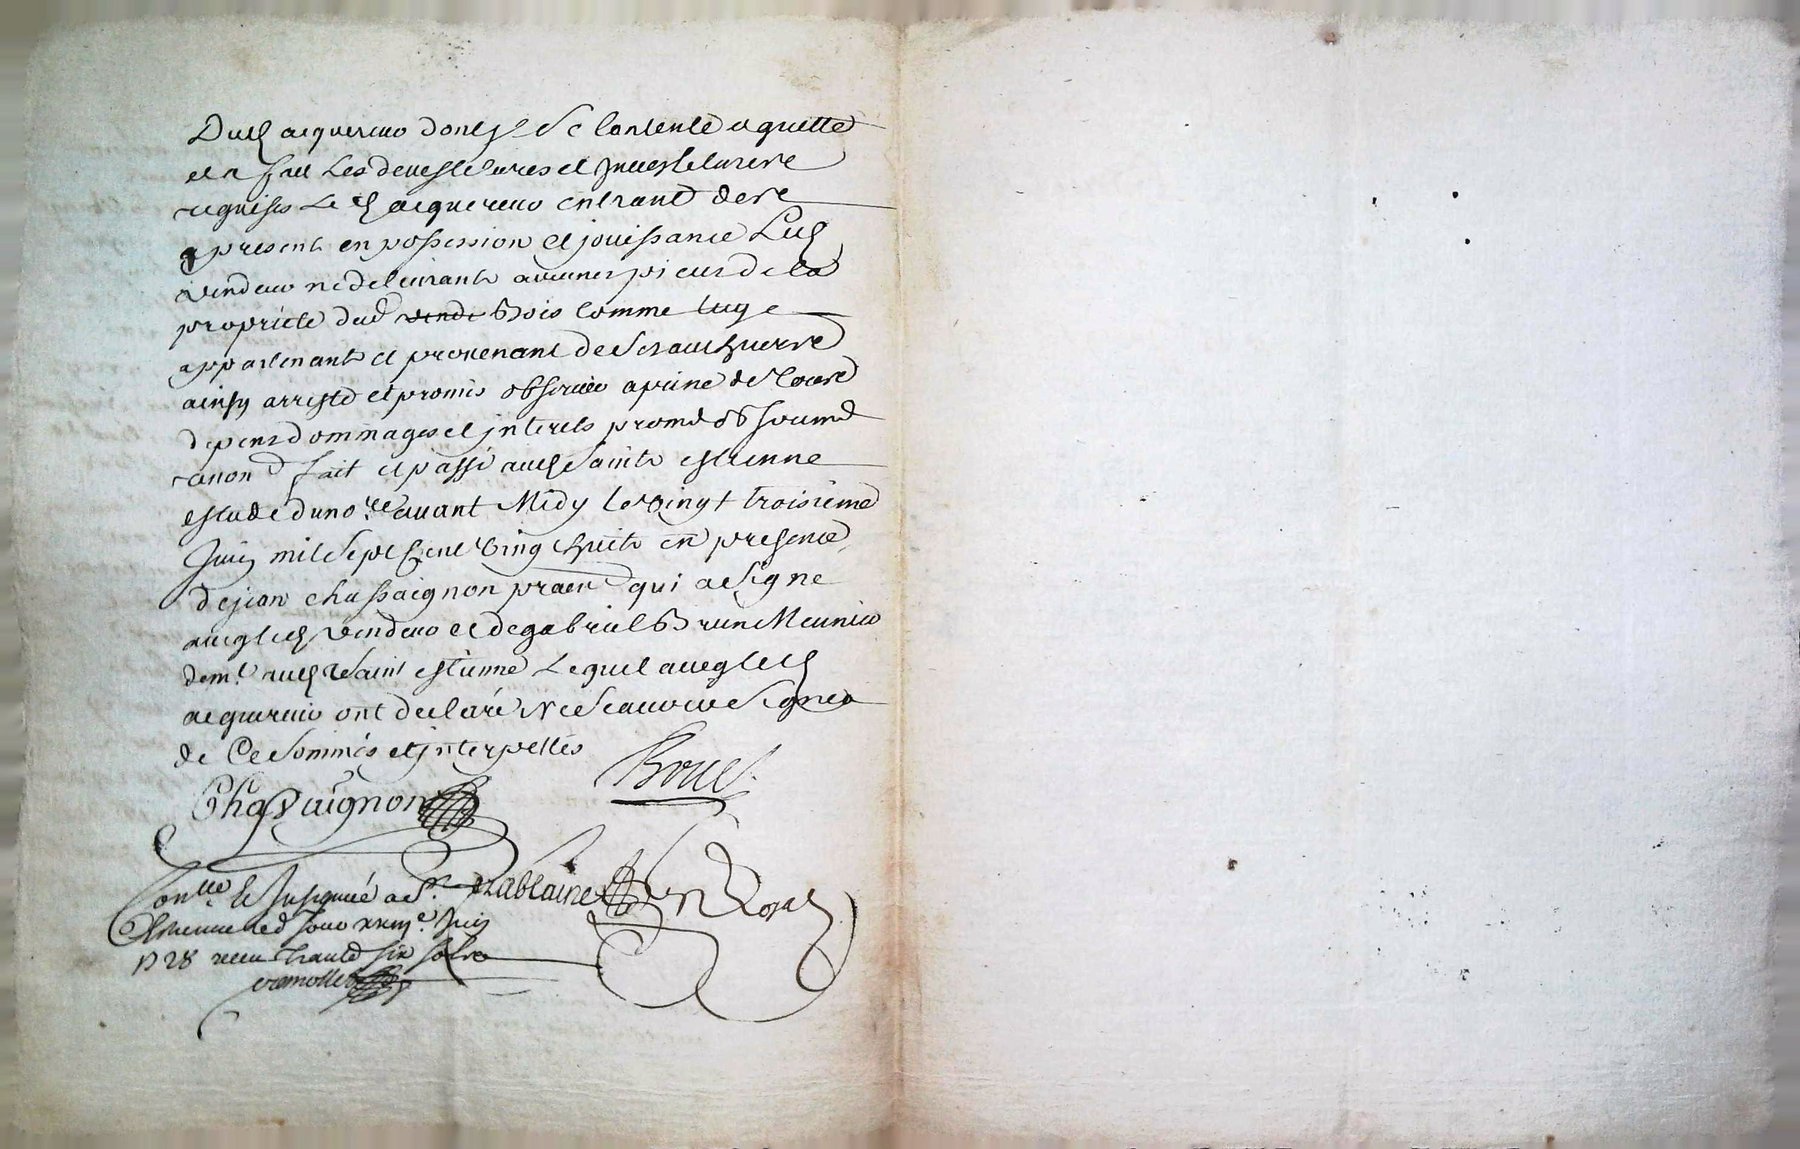 Dud acquereur dont il se contente et quitte
et a fait les devestetures et Investeture
requises Led acquereur entrant des
a present en possession et jouissance Led
vendeur ne detenant aucunes pieces de la
propriete dud vende Bois comme luy
appartenant et provenant de ses
ainsy arresté et promis observer a peine de tous
depens dommages et interets promd obd soumd
renond fait et passé aud Saint estienne
estude du no.re avant Midy le vingt troisieme
Juin mil sept Cent Vingt huit en presence
de jean chassaignon praen qui a signe
avec led vendeur et de gabriel Brun Meunier
dem.t aud Saint estienne Lequel avec led
acquereur ont declaré Ne scavoir signer
de Ce sommés et interpellés
Chassaignon
Rouel
Delablaine
Royal
Con.lle et Insinué a S.t
Estienne led jour xxiii.e Juin
1728 receu trante six sols